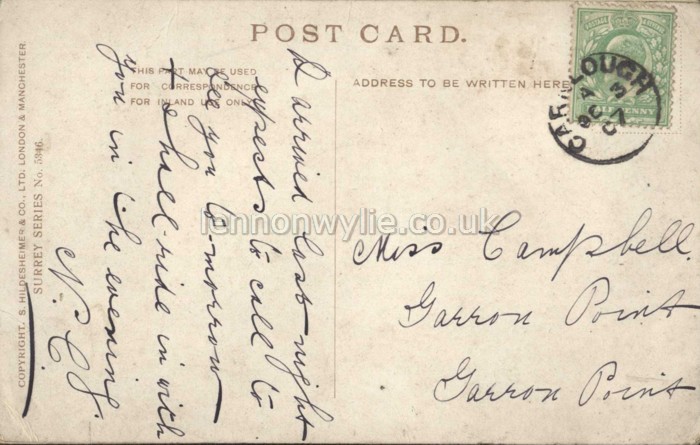 POST CARD.
THIS PART MAY BE USED
FOR CORRESPONDENCE
FOR INLAND USE ONLY
ADDRESS TO BE WRITTEN HERE
HALFPENNY
CARNLOUGH
A
OC 3
07
arrived last night
expects to call to
see you to-morrow
& shall ride in with
you in the evening
Miss Campbell.
Garron Point
Garron Point
COPYRIGHT, S. HILDESHEIMER & CO., LTD. LONDON & MANCHESTER.
SURREY SERIES No. 5346.
lennonwylie.co.uk